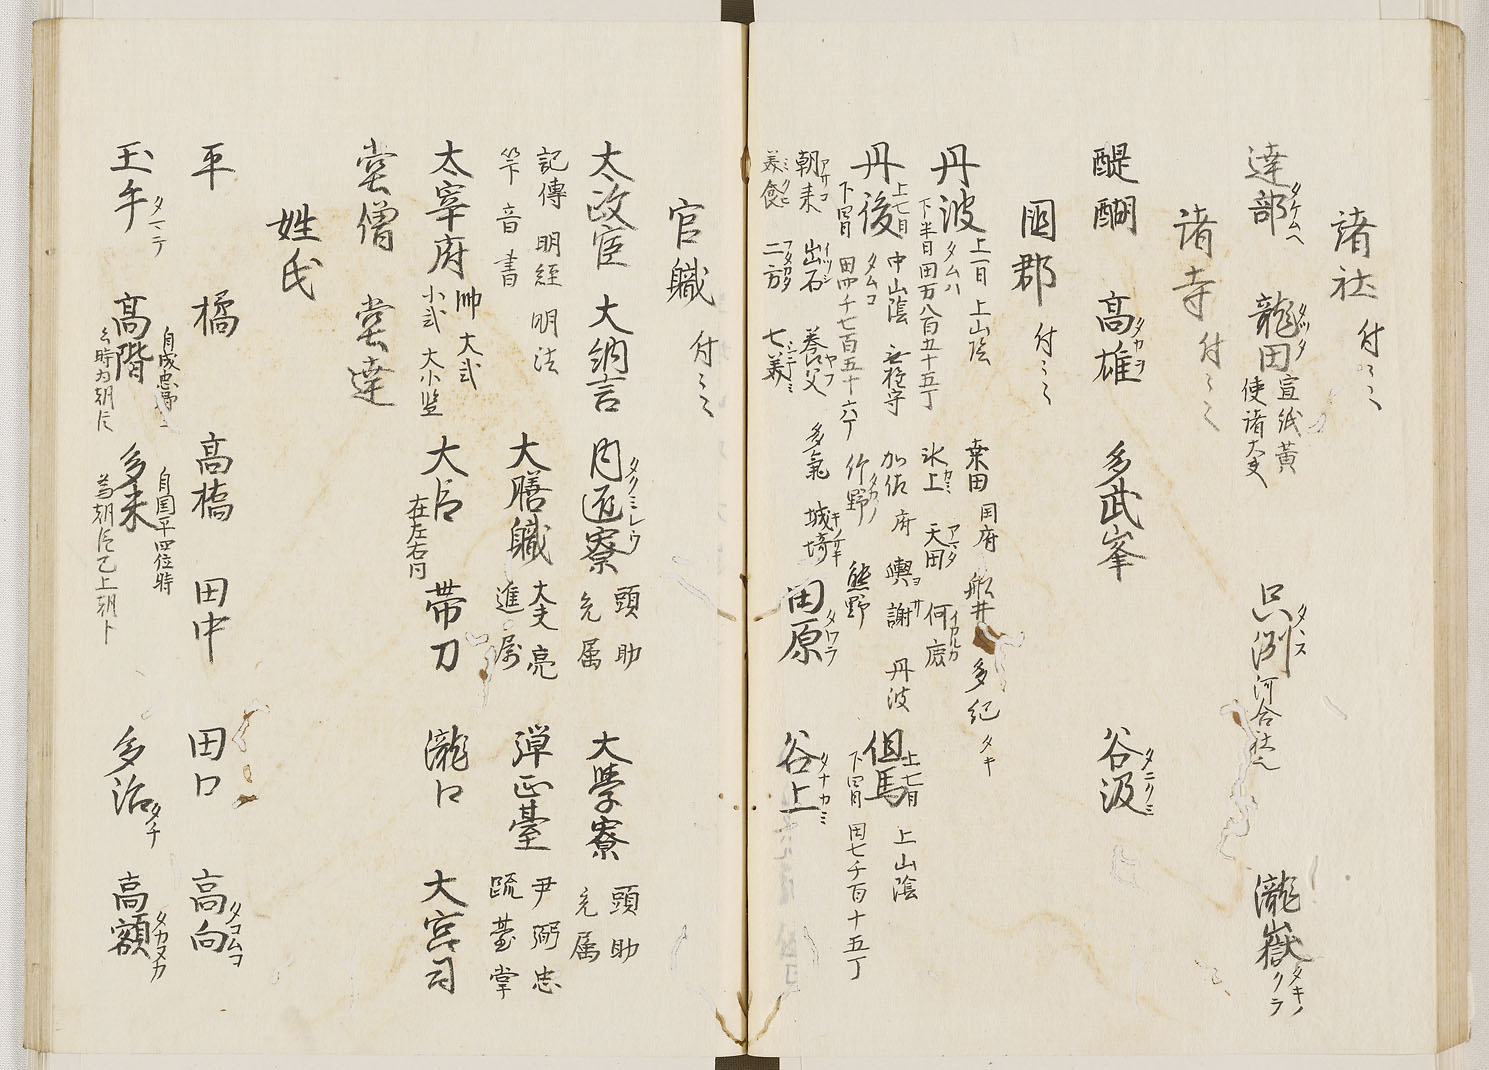 諸社 付〻〻
達部 タケムヘ 龍田 タツタ 宣紙黄 使諸大夫 只洲 タヽス 河合社也 瀧嶽 タキノクラ
諸寺 付〻〻
醍醐 高雄 タカヲ 多武峯 谷汲 タニクミ
国郡 付〻〻
丹波 タムハ 上一日 上山陰 下半日 田万八百五十五丁 桒田 国府 船井 多紀 タキ 氷上 天田 アマタ 何鹿 イカルカ
丹後 タムコ 上七日 下四日 中山陰 田四千七百五十六丁 加佐 府 與謝 ヨサ 丹波 竹野 タカノ 熊野 但馬 上七日 下四日 上山陰 田七千百十五丁
朝来 アサコ 出石 イツシ 養父 ヤフ 多氣 城埼 キノサキ 田原 タワラ 谷上 タナカミ
美含 ミクミ 二方 フタカタ 七美 シチミ
官職 付〻〻
太政官 大納言 内匠寮 タクミレウ 頭 助 允 属 大學寮 頭 助 允 属
記傳 明經 明法 大膳職 大夫 亮 進 属 彈正臺 尹 弼 忠 疏 臺掌
笇下 音 書
太宰府 帥 大弐 小弐 大小監 大戸 在左右門 帯刀 瀧口 大宮司
堂僧 堂達
姓氏
平 橘 高橋 田中 田口 高向 タコムコ
玉手 タマテ 高階 多米 多治 タチ 高額 タカヌカ